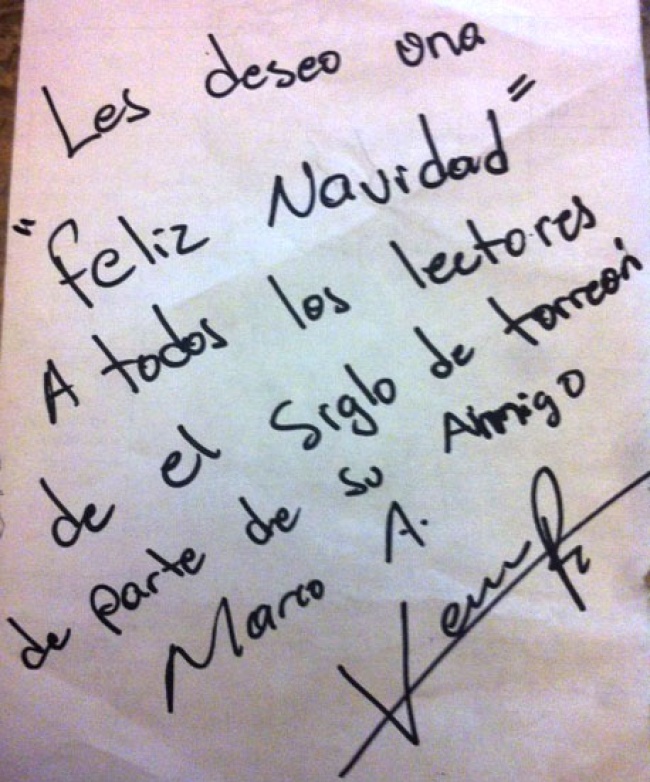 Les deseo una
"Feliz Navidad"
A todos los lectores
de el Siglo de torreón
de parte de su Amigo
Marco A.